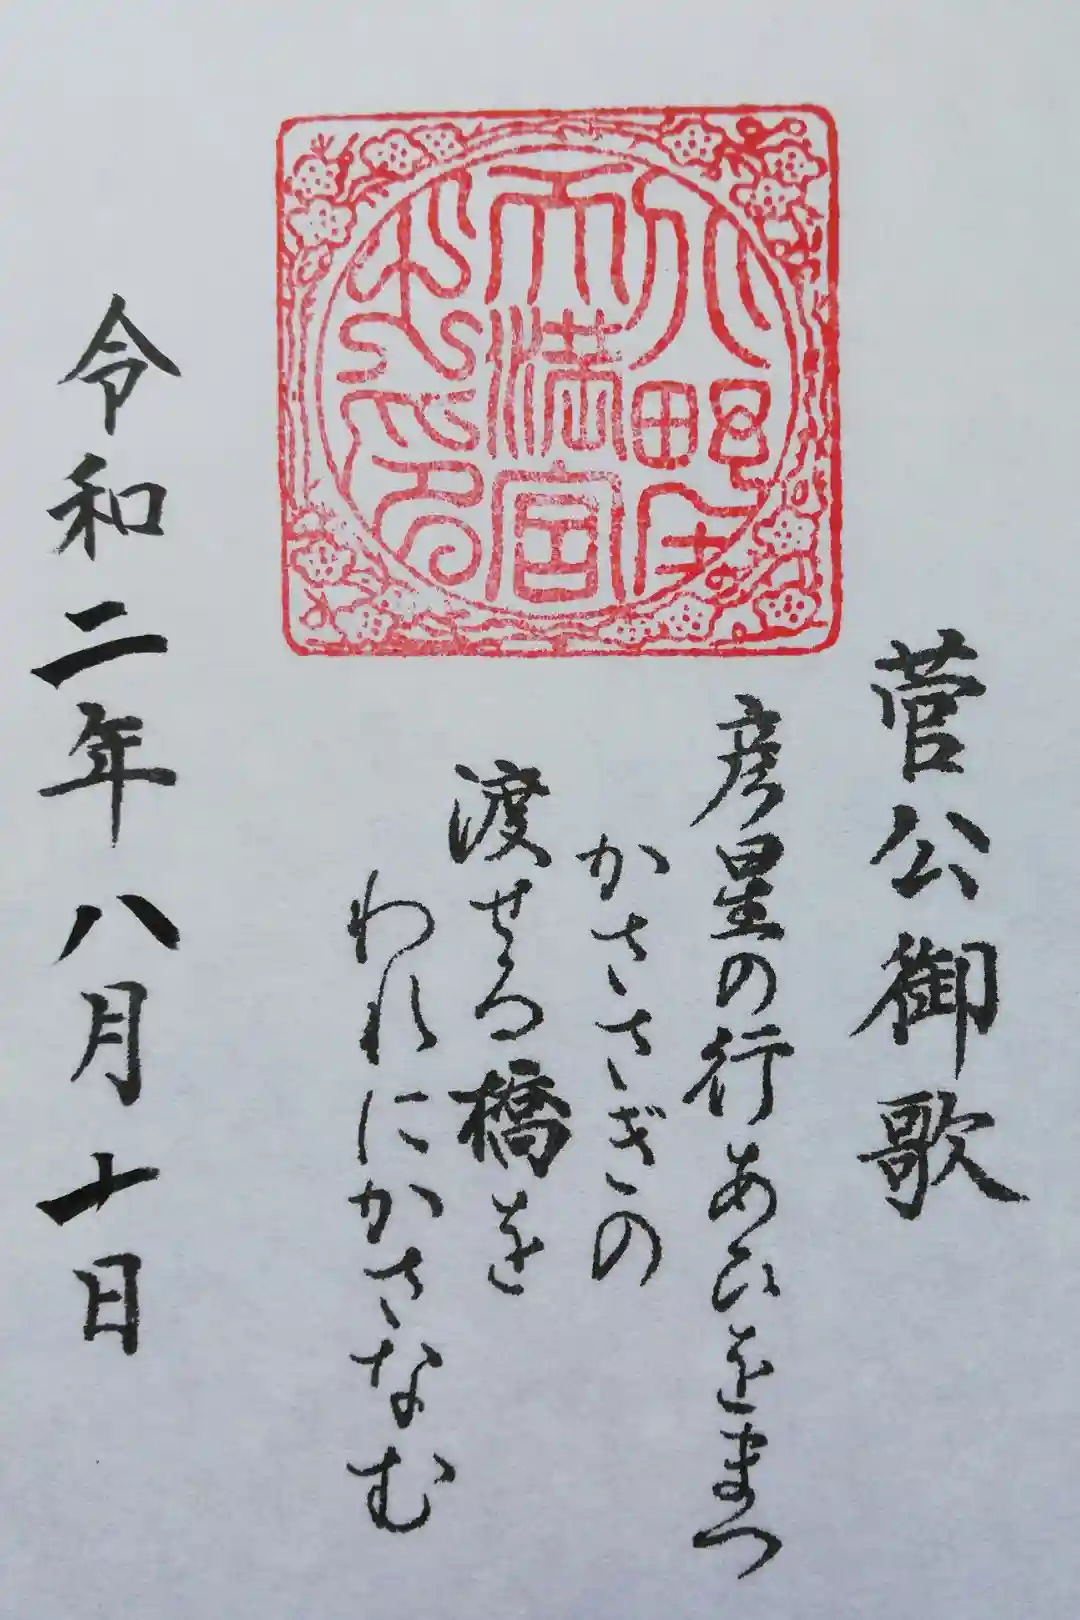 天満宮
菅公御歌
彦星の行あひをまつ
かささぎの
渡せる橋を
われにかさなむ
令和二年八月十日